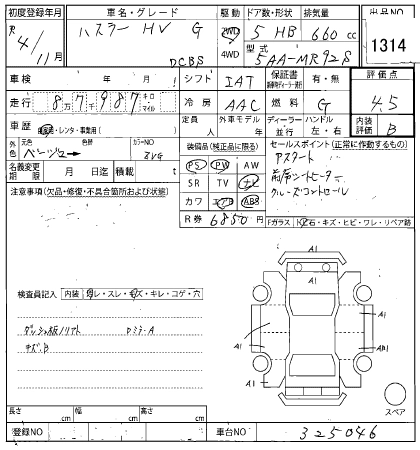 初度登録年月
R 4/11月
車名・グレード
ハスラー HV G
DCBS
駆動
2WD
4WD
ドア数・形状
5 HB
排気量
660 cc
型式
5AA-MR92S
出品NO
1314
車検 年 月
シフト IAT
保証書 有・無
評価点
4.5
走行 8万7千987 キロ マイル
冷房 AAC
燃料 G
車歴 自家用・レンタ・事業用( )
定員 人
外車モデル 年
ディーラー 並行
ハンドル 左・右
内装評価 B
外色
元色 ベージュ
色替
カラーNO
名義変更期限 月 日迄
積載 t
装備品(純正品に限る)
PS PW AW
SR TV ナビ
カワ エアB ABS
R券 6850 円
セールスポイント(正常に作動するもの)
アスタート
前席シートヒーター
クルーズコントロール
注意事項(欠品・修復・不具合箇所および状態)
Fガラス 飛石・キズ・ヒビ・ワレ・リペア跡
A1
A1
A1
A1
A1
A1
検査員記入 内装 汚レ・スレ・キズ・キレ・コゲ・穴
ダッシュ板ノリアト
キズ.B
スペア
長さ cm
幅 cm
高さ cm
登録NO
車台NO 325046